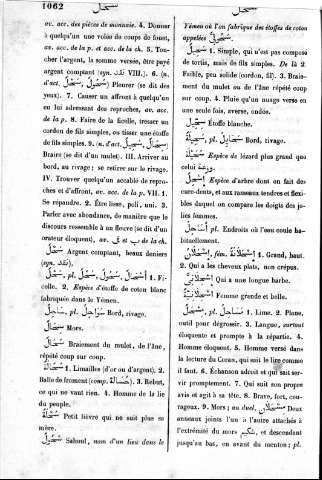 1062
سحل
سحل
av. acc. des pièces de monnaie. 4. Donner
à quelqu'un une volée de coups de fouet,
av. acc. de la p. et acc. de la ch. 5. Tou-
cher l'argent, la somme versée, être payé
argent comptant (syn. نقد VIII.). 6. (n.
d'act. سحيل, سحول) Pleurer (se dit des
yeux). 7. Causer un affront à quelqu'un
en lui adressant des reproches, av. acc.
de la p. 8. Faire de la ficelle, tresser un
cordon de fils simples, ou tisser une étoffe
de fils simples. 9. (n. d'act. سحيل, سحال)
Braire (se dit du mulet). III. Arriver au
bord, au rivage ; se retirer sur le rivage.
IV. Trouver quelqu'un accablé de repro-
ches et d'affront, av. acc. de la p. VII. 1.
Se répandre. 2. Être lisse, poli, uni. 3.
Parler avec abondance, de manière que le
discours ressemble à un fleuve (se dit d'un
orateur éloquent), av. ب et في de la ch.
سحل Argent comptant, beaux deniers
(syn. نقد).
سحل, pl. سحول, أسحال 1. Fi-
celle. 2. Espèce d'étoffe de coton blanc
fabriquée dans le Yémen.
ساحل, pl. سواحل Bord, rivage.
سحال Mors.
سحال Braiement du mulet, de l'âne,
répété coup sur coup.
سحالة 1. Limailles (d'or ou d'argent). 2.
Balle de froment (comp. حسالة). 3. Rebut,
ce qui ne vaut rien. 4. Homme de la lie
du peuple.
سحلة Petit lièvre qui ne suit plus sa
mère.
سحول Sahoul, nom d'un lieu dans le
Yémen où l'on fabrique des étoffes de coton
appelées سحولي.
سحيل 1. Simple, qui n'est pas composé
de tortis, mais de fils simples. De là 2.
Faible, peu solide (cordon, fil). 3. Braie-
ment du mulet ou de l'âne répété coup
sur coup. 4. Pluie qu'un nuage verse en
une seule fois, averse, ondée.
سحيل Étoffe blanche.
سحيلة, pl. سحايل Bord, rivage.
سحلية Espèce de lézard plus grand que
celui وزغة.
إسحل Espèce d'arbre dont on fait des
cure-dents, et aux rameaux tendres et flexi-
bles duquel on compare les doigts des jo-
lies femmes.
أساحل pl. Endroits où l'eau coule ha-
bituellement.
إسحلان, fém. إسحلانة 1. Grand, haut.
2. Qui a les cheveux plats, non crépus.
إسحلاني Qui a une longue barbe.
إسحلانية Femme grande et belle.
مسحل, pl. مساحل 1. Lime. 2. Plane,
outil pour dégrossir. 3. Langue, surtout
éloquente et prompte à la répartie. 4.
Homme éloquent. 5. Homme versé dans
la lecture du Coran, qui suit le lire comme
il faut. 6. Échanson adroit et qui sait ser-
vir promptement. 7. Qui suit son propre
avis et agit à sa tête. 8. Brave, fort, cou-
rageux. 9. Mors ; au duel, مسحلان Deux
anneaux joints l'un à l'autre attachés à
l'extrémité du mors شكيم, et descendant
jusqu'au bas, en avant du menton ; pl.